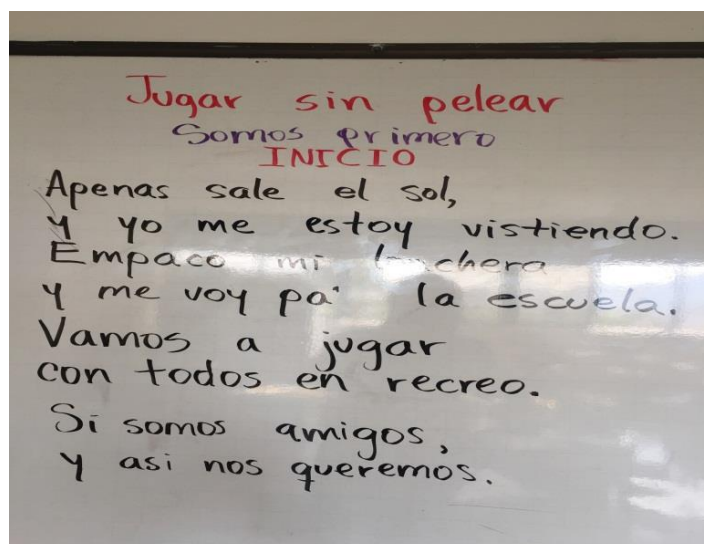 Jugar sin pelear
Somos primero
INICIO
Apenas sale el sol,
y yo me estoy vistiendo.
Empaco mi lonchera
y me voy pa' la escuela.
Vamos a jugar
con todos en recreo.
Si somos amigos,
y asi nos queremos.